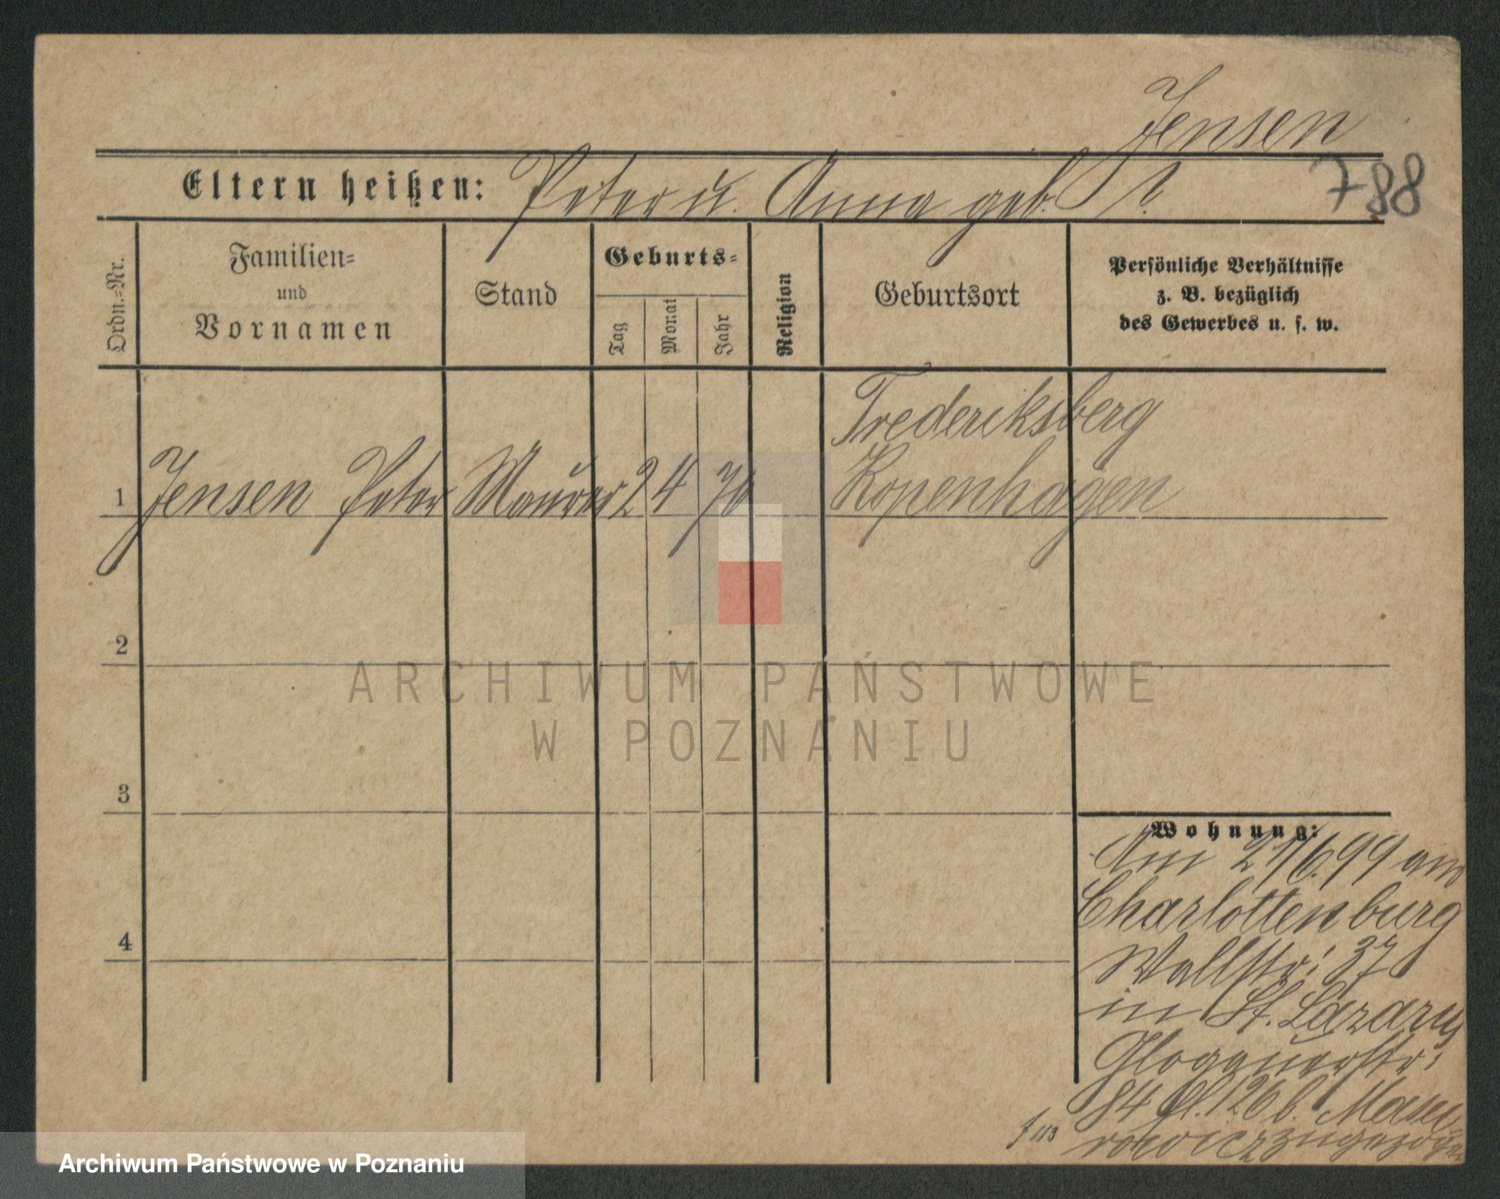 Jensen
Eltern heißen: Peter u. Anna geb. ?
788
Ordn.-Nr.
Familien-
und
Vornamen
Stand
Geburts-
Tag
Monat
Jahr
Religion
Geburtsort
Persönliche Verhältnisse
z. B. bezüglich
des Gewerbes u. s. w.
Frederiksberg
1 Jensen Peter Maurer 2 4 70 Kopenhagen
2
ARCHIWUM PAŃSTWOWE
W POZNANIU
3
Wohnung:
Am 21/6.99 aus
Charlottenburg
Wallstr. 37
in St. Lazarus
Glogauerstr.
84 126 b.
zugezogen
4
Archiwum Państwowe w Poznaniu